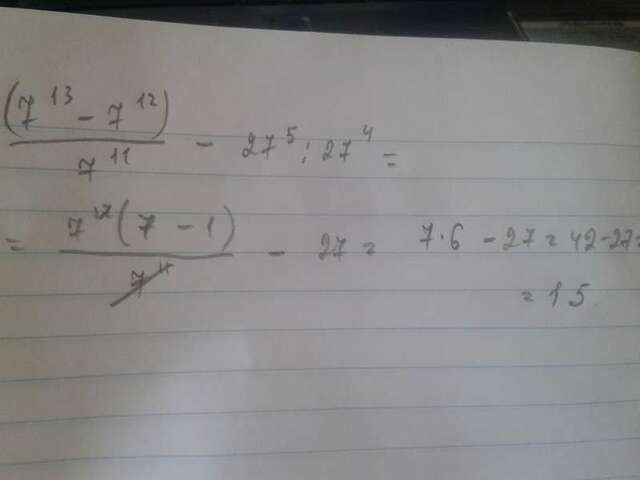 (7¹³ - 7¹²) / 7¹¹ - 27⁵ : 27⁴ =
= 7¹²(7 - 1) / 7¹¹ - 27 = 7·6 - 27 = 42 - 27 =
= 15